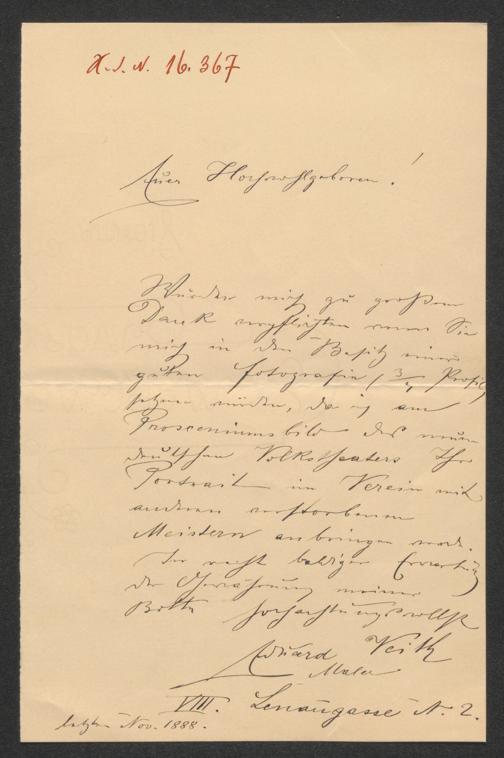 H. I. N. 16.367
Euer Hochwohlgeboren!
Würden mich zu großem
Dank verpflichten wenn Sie
mich in den Besitz einer
guten Fotografie (3/4 Profil)
setzen würden, da ich am
Prosceniumsbild des neuen
deutschen Volkstheaters Ihr
Portrait im Verein mit
anderen verstorbenen
Meistern anbringen werde.
In recht baldiger Erwartung
der Gewährung meiner
Bitte hochachtungsvollst
Eduard Veith
Maler
VIII. Lenaugasse N. 2.
letzten Nov. 1888.